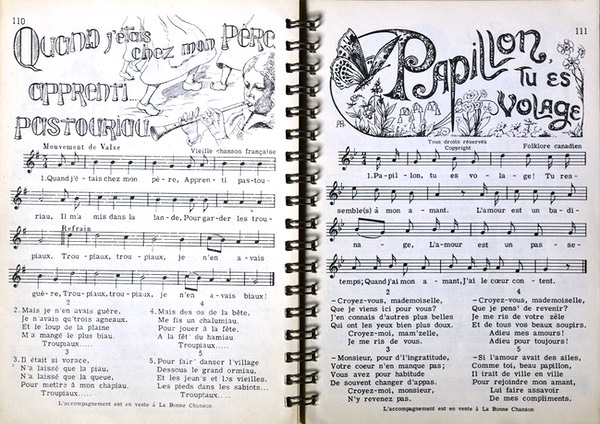 110
Quand j'étais chez mon Père
apprenti...
pastouriau
Mouvement de Valse
Vieille chanson française
1.Quand j'é - tais chez mon pè - re, Appren - ti pas-tou-
riau, Il m'a mis dans la lan - de, Pour gar - der les trou-
Refrain
piaux. Trou - piaux, trou - piaux, je n'en a - vais
guè - re, Trou - piaux, trou - piaux, je n'en a - vais biaux!
2
2.Mais je n'en avais guère.
Je n'avais qu'trois agneaux.
Et le loup de la plaine
M'a mangé le plus biau.
Troupiaux.....
3
3.Il était si vorace,
N'a laissé que la piau,
N'a laissé que la queue,
Pour mettre à mon chapiau.
Troupiaux.....
4
4.Mais des os de la bête,
Me fis un chalumiau,
Pour jouer à la fête,
A la fêt' du hamiau
Troupiaux.....
5
5.Pour fair' danser l'village
Dessous le grand ormiau,
Et les jeun's et les vieilles,
Les pieds dans les sabiots...
Troupiaux.....
L'accompagnement est en vente à La Bonne Chanson
111
Papillon,
tu es
volage
Tous droits réservés
Copyright
Folklore canadien
1.Pa-pil - lon, tu es vo - la - ge! Tu res-
semble(s) à mon a - mant. L'amour est un ba - di-
na - ge, L'a-mour est un pas - se-
temps; Quand j'ai mon a - mant, J'ai le cœur con - tent.
2
- Croyez-vous, mademoiselle,
Que je viens ici pour vous?
J'en connais d'autres plus belles
Qui ont les yeux bien plus doux.
Croyez-moi, mam'zelle,
Je me ris de vous.
3
- Monsieur, pour d'l'ingratitude,
Votre coeur n'en manque pas;
Vous avez pour habitude
De souvent changer d'appas.
Croyez-moi, monsieur,
N'y revenez pas.
4
- Croyez-vous, mademoiselle,
Que je pens' de revenir?
Je me ris de votre zèle
Et de tous vos beaux soupirs.
Adieu mes amours!
Adieu pour toujours!
5
-Si l'amour avait des ailes,
Comme toi, beau papillon,
Il irait de ville en ville
Pour rejoindre mon amant,
Lui faire assavoir
De mes compliments.
L'accompagnement est en vente à La Bonne Chanson